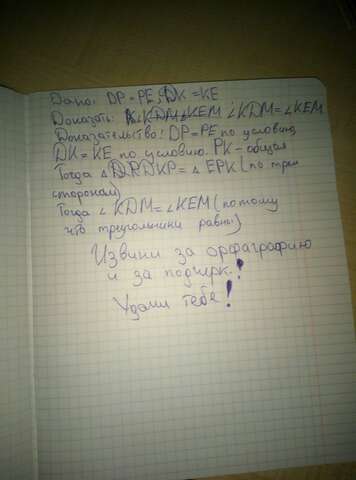 Дано: DP = PE, DK = KE
Доказать: ∠KDM = ∠KEM
Доказательство: DP = PE по условию
DK = KE по условию. PK - общая
Тогда △ DKP = △ EPK (по трем
сторонам)
Тогда ∠ KDM = ∠KEM (потому
что треугольники равны)
Извини за орфаграфию
и за подчерк!
Удачи тебе!